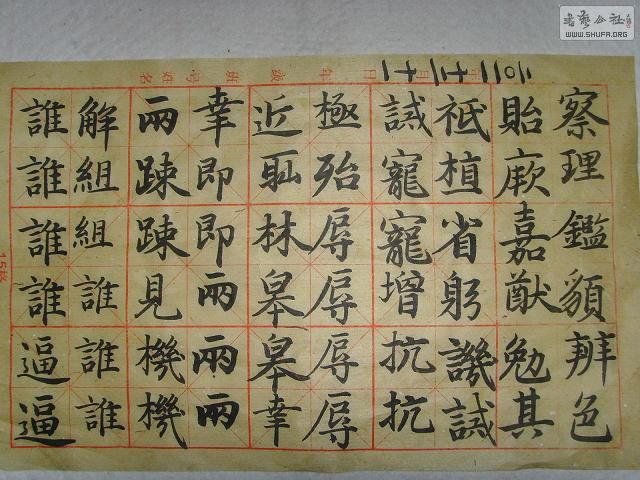 察理鑑貌辨色
貽厥嘉猷勉其
祗植省躬譏誡
誡寵寵增抗抗
極殆辱辱辱辱
近恥林皋皋幸
幸即即兩兩兩
兩疎疎見機機
解組組誰誰誰
誰誰誰誰逼逼
年級班號姓名
書藝公社
WWW.SHUFA.ORG